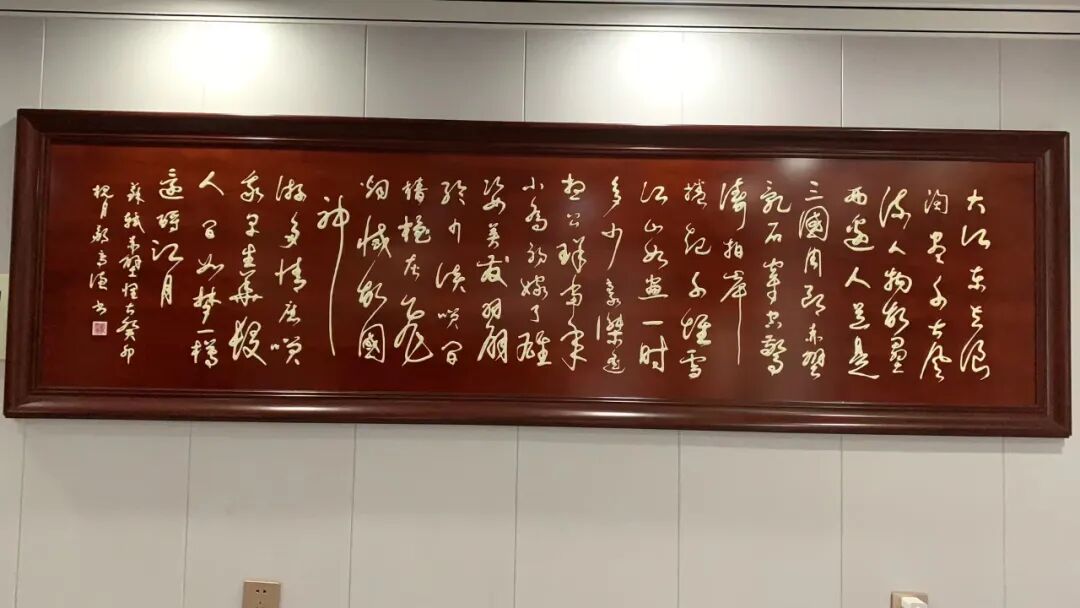 大江东去浪
淘尽千古风
流人物故壘
西邊人道是
三國周郎赤壁
乱石穿空驚
濤拍岸
捲起千堆雪
江山如画一时
多少豪傑遥
想公瑾当年
小乔初嫁了雄
姿英发羽扇
纶巾谈笑间
檣櫓灰飞
烟灭故國
神
游多情应笑
我早生華髮
人间如梦一樽
還酹江月
蘇轼赤壁怀古癸卯
槐月 书